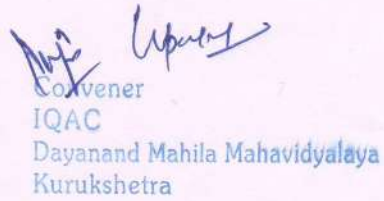 Convener
IQAC
Dayanand Mahila Mahavidyalaya
Kurukshetra